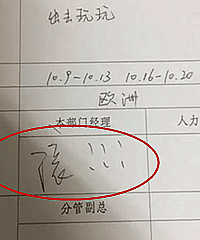 出去玩玩
10.9-10.13 10.16-10.20
欧洲
本部门经理 人力
张
分管副总